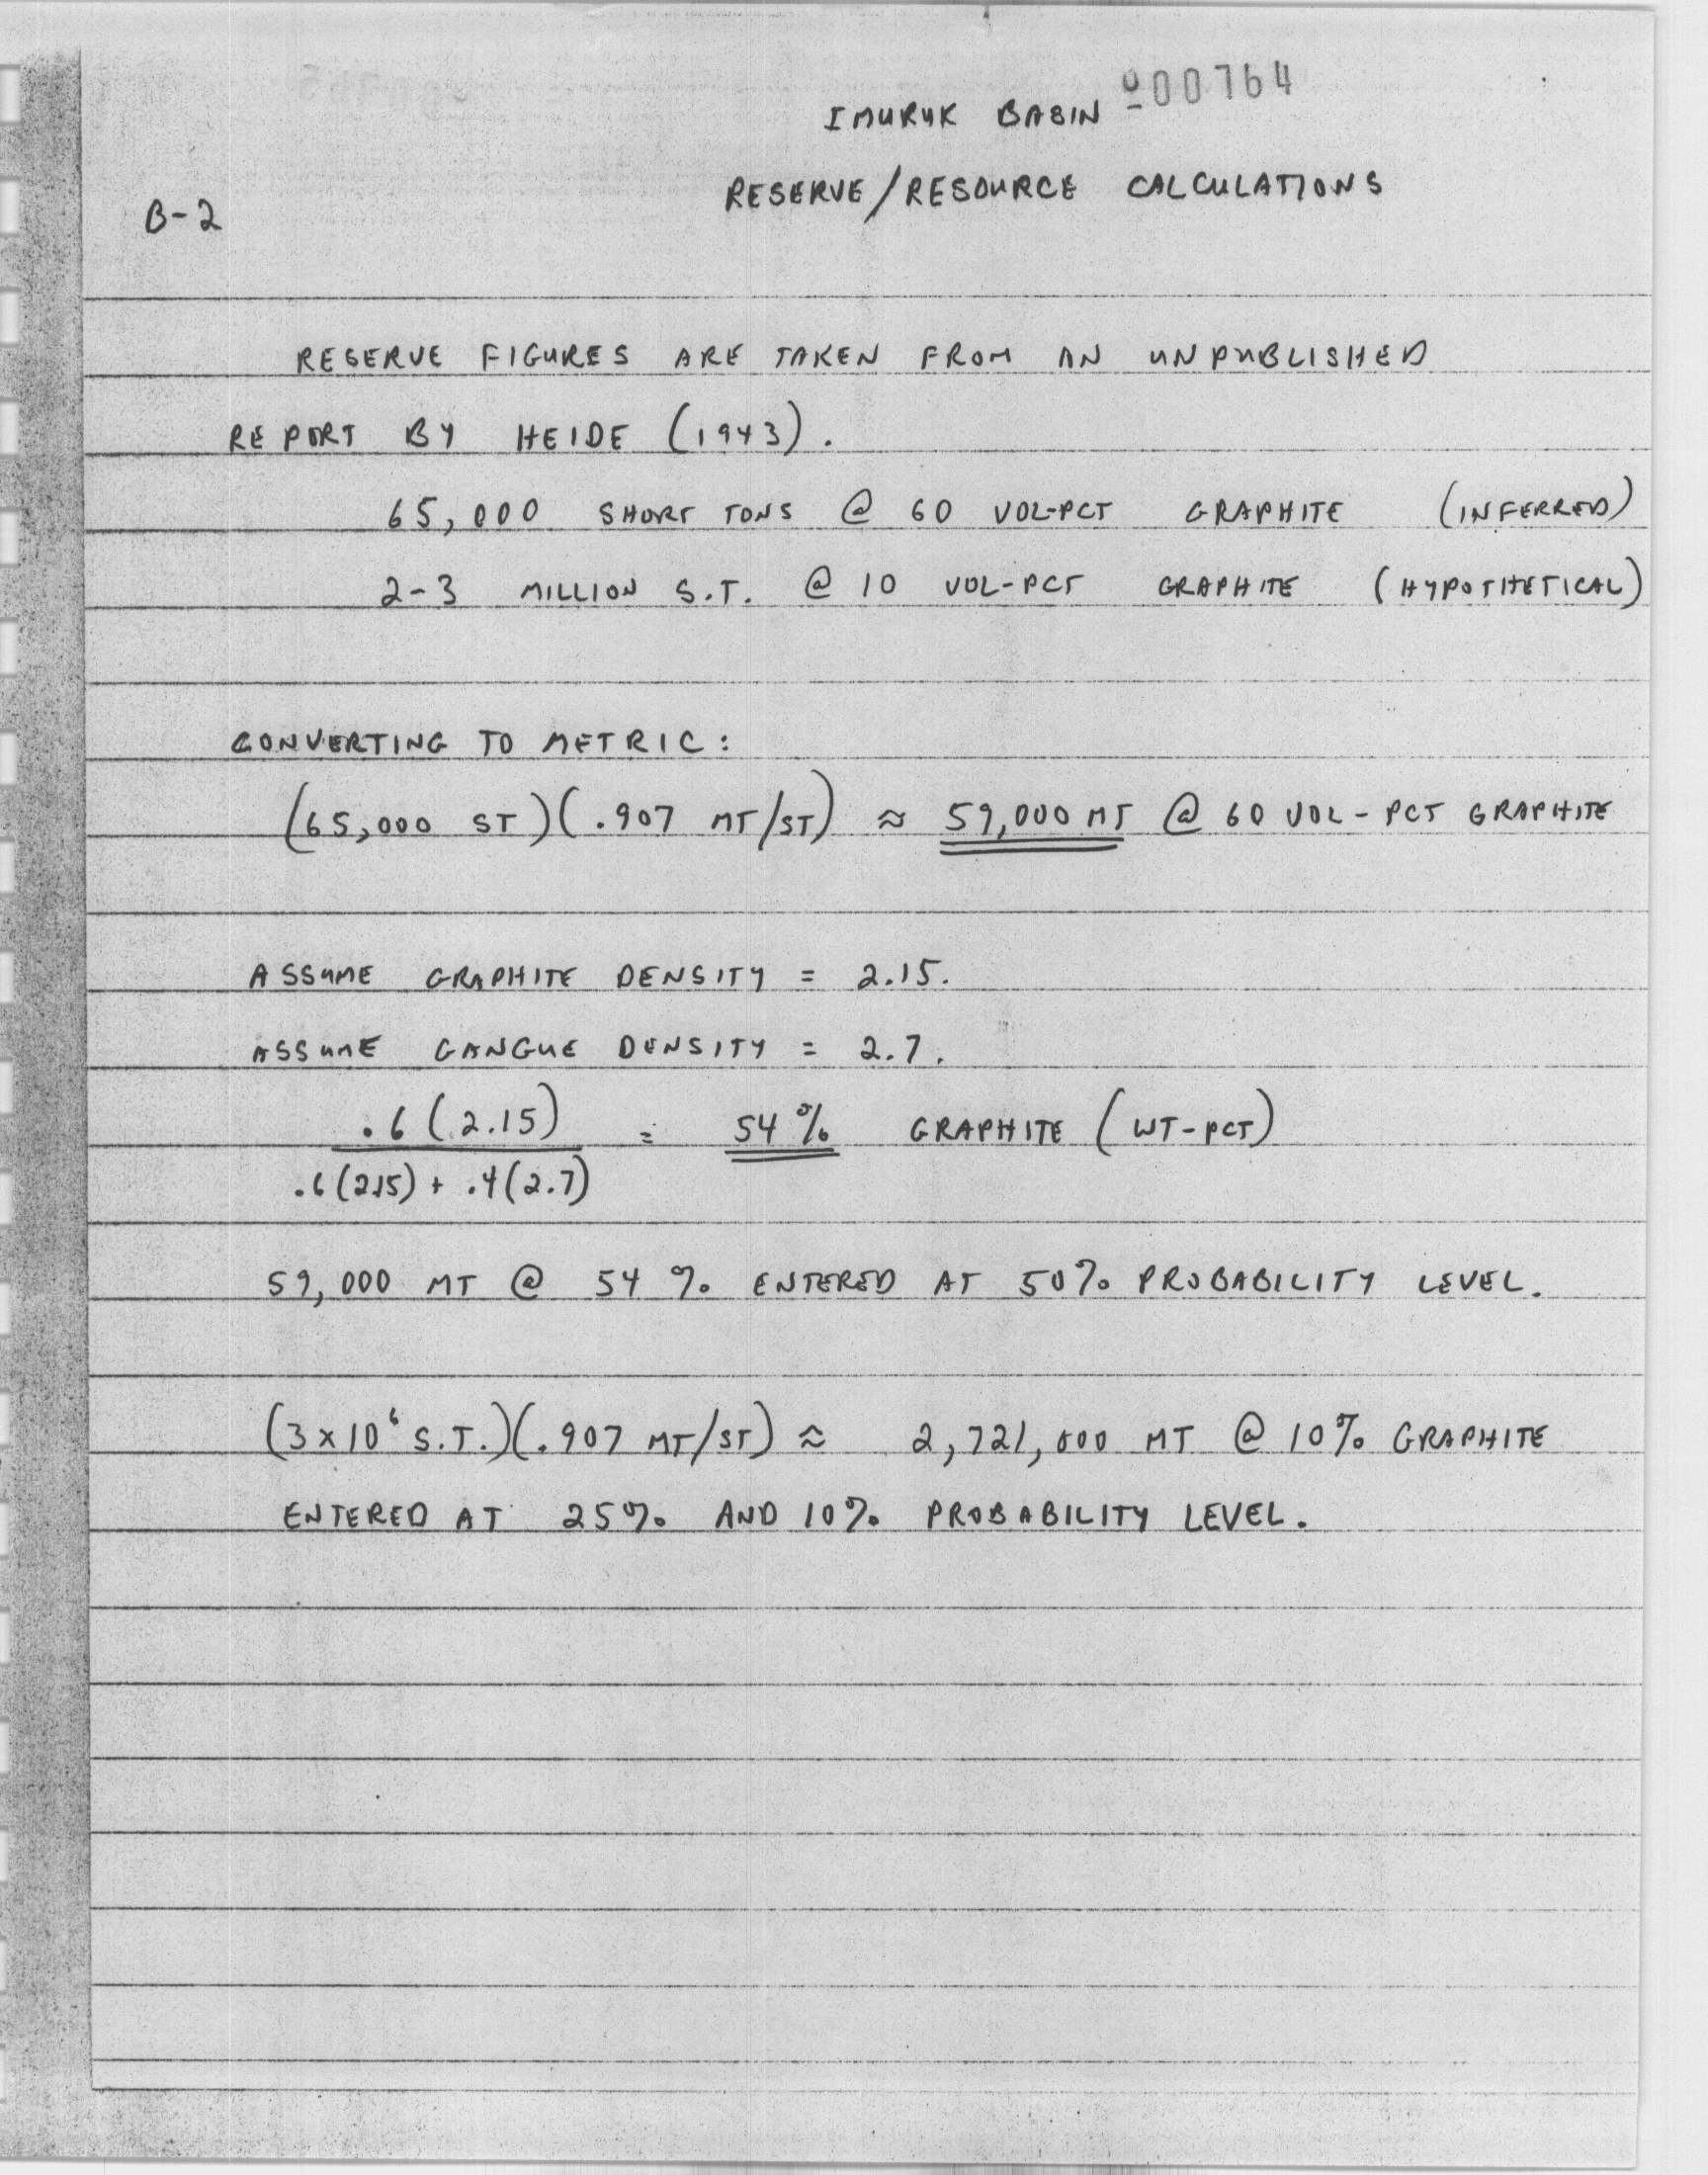 000764
IMURUK BASIN
RESERVE/RESOURCE CALCULATIONS
B-2
RESERVE FIGURES ARE TAKEN FROM AN UNPUBLISHED
REPORT BY HEIDE (1943).
65,000 SHORT TONS @ 60 VOL-PCT GRAPHITE (INFERRED)
2-3 MILLION S.T. @ 10 VOL-PCT GRAPHITE (HYPOTHETICAL)
CONVERTING TO METRIC:
(65,000 ST)(.907 MT/ST) ≈ 59,000 MT @ 60 VOL-PCT GRAPHITE
ASSUME GRAPHITE DENSITY = 2.15.
ASSUME GANGUE DENSITY = 2.7.
.6(2.15) = 54% GRAPHITE (WT-PCT)
.6(2.15) + .4(2.7)
59,000 MT @ 54% ENTERED AT 50% PROBABILITY LEVEL.
(3x10⁶ S.T.)(.907 MT/ST) ≈ 2,721,000 MT @ 10% GRAPHITE
ENTERED AT 25% AND 10% PROBABILITY LEVEL.